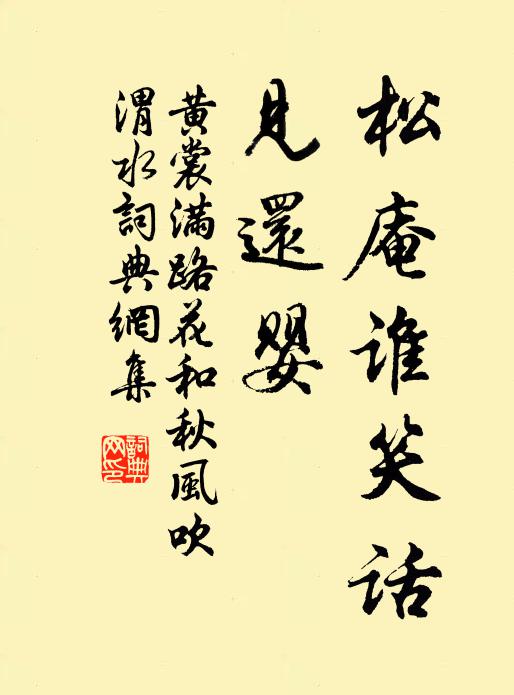 松庵谁笑话
见還婴
黄裳满路花和秋風吹
渭水詞典網集
詞典网印